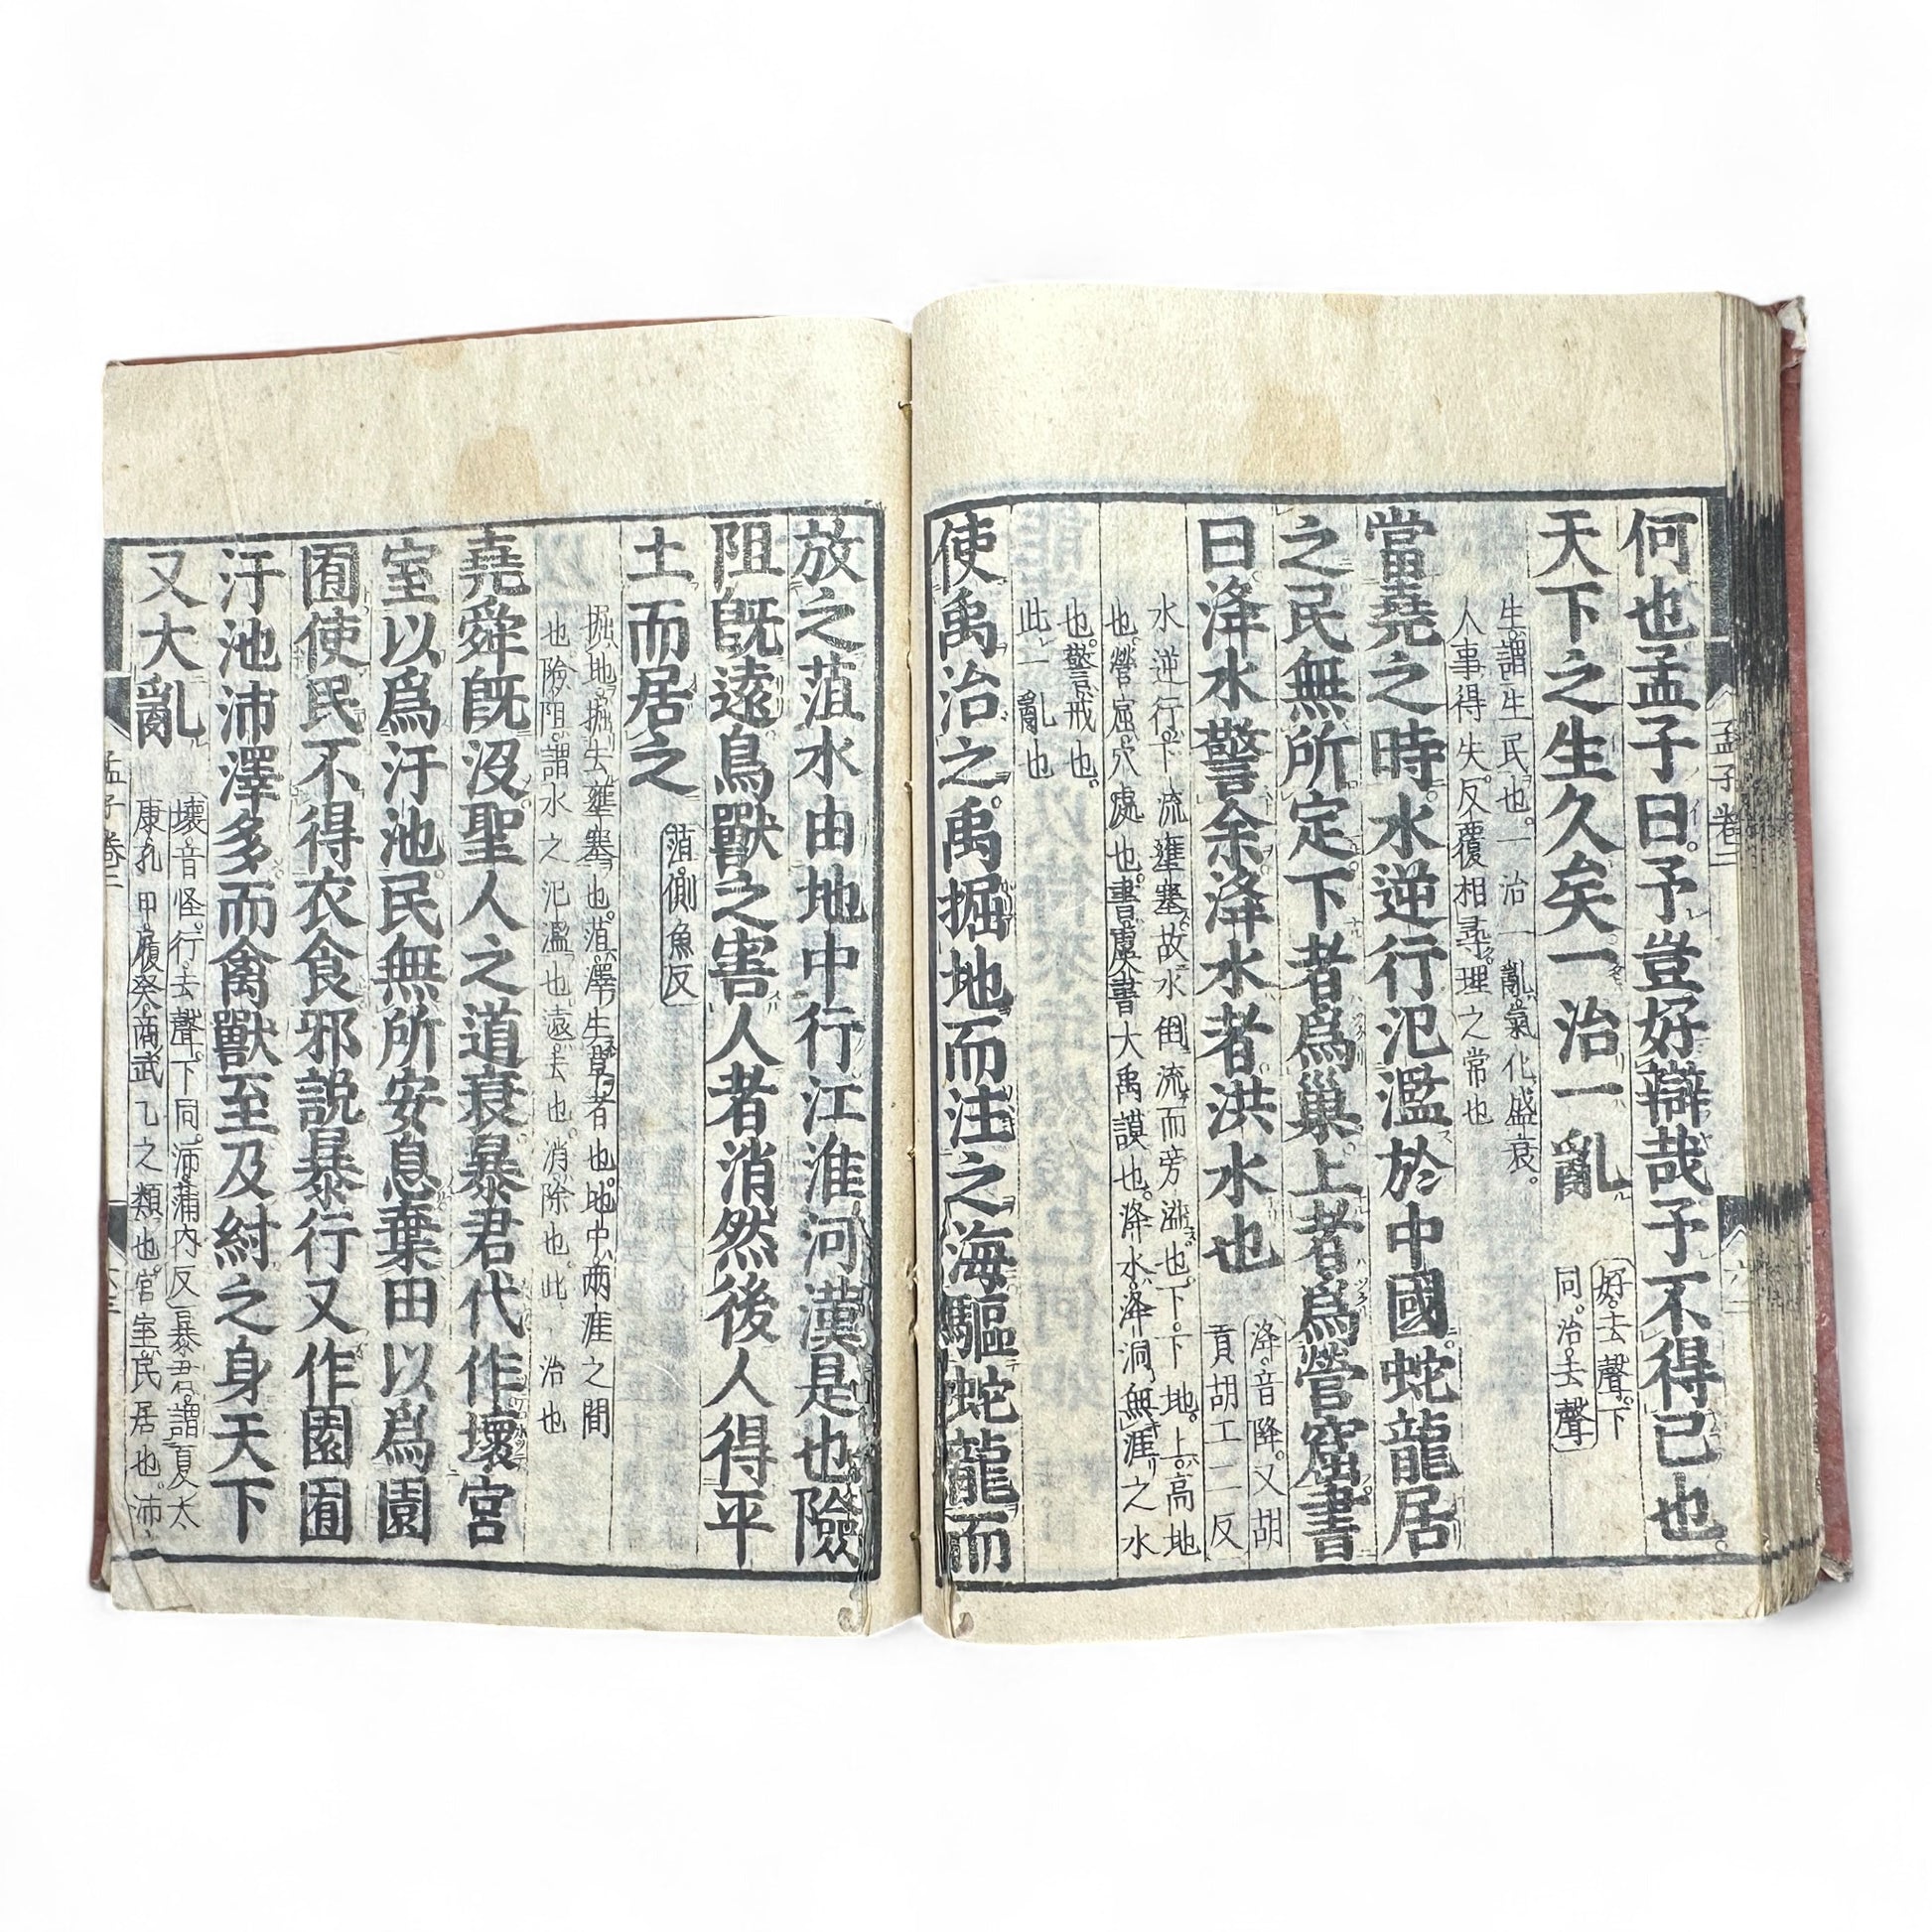 孟子卷
何也孟子曰。予豈好辯哉予不得已也。
天下之生久矣一治一亂
好。去聲。下
同。治。去聲
生。謂生民也。一治一亂。氣化盛衰。
人事得失。反覆相尋。理之常也
當堯之時。水逆行氾濫於中國蛇龍居
之民無所定。下者爲巢。上者爲營窟書
曰。洚水警余洚水者洪水也
洚。音降。又胡
貢胡工二反
水逆行。下流壅塞。故水倒流而旁溢也。下。下地。上。高地
也。營窟。穴處也。書虞書大禹謨也。洚水。洚洞無涯之水
也。警。戒也。
此一亂也
使禹治之。禹掘地而注之海驅蛇龍而
放之菹水由地中行江淮河漢是也險
阻旣遠鳥獸之害人者消然後人得平
土而居之
菹。側魚反
掘地。掘去壅塞也。菹。澤生草者也。地中。兩涯之間
也險阻。謂水之氾濫也。遠。去也。消。除也。此一治也
堯舜旣沒聖人之道衰暴君代作壞宮
室以爲汙池。民無所安息棄田以爲園
囿使民不得衣食邪說暴行又作園囿
汙池沛澤多而禽獸至及紂之身天下
又大亂
壞。音怪。行。去聲。下同。沛。蒲內反 暴君。謂夏太
康孔甲履癸商武乙之類也。宮室民居也。沛。
孟子卷三